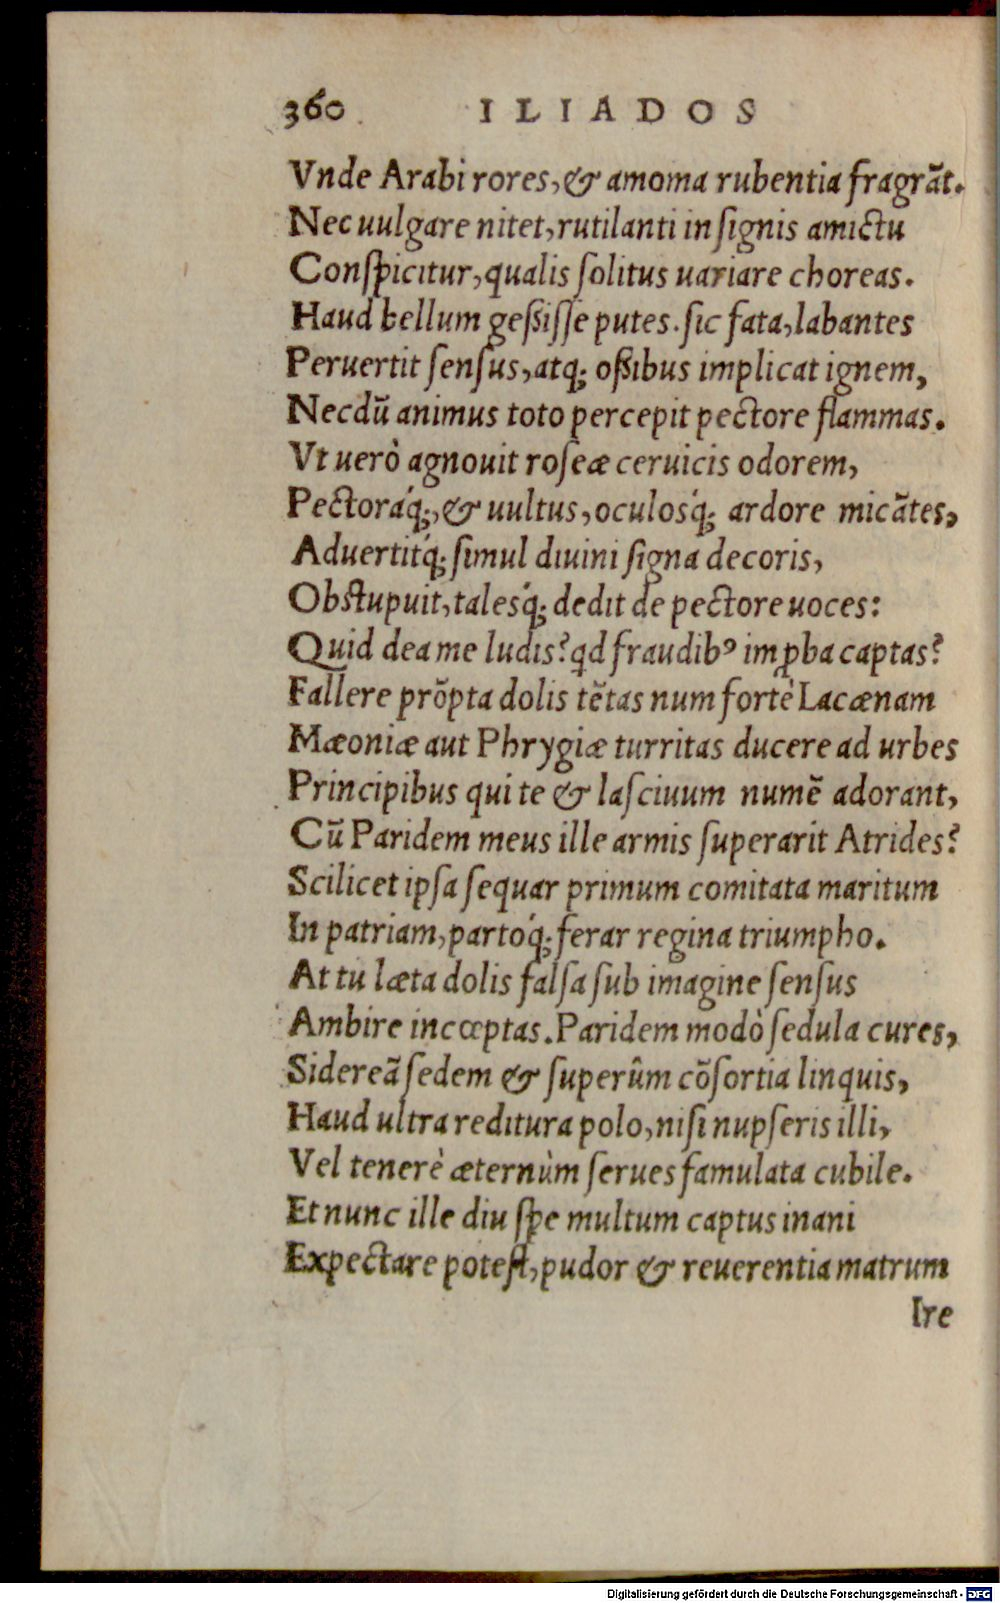 360 ILIADOS
Vnde Arabi rores, & amoma rubentia fragrãt.
Nec uulgare nitet, rutilanti inſignis amictu
Conſpicitur, qualis ſolitus uariare choreas.
Haud bellum geßiſſe putes. ſic fata, labantes
Peruertit ſenſus, atq; oßibus implicat ignem,
Necdũ animus toto percepit pectore flammas.
Vt uerò agnouit roſeæ ceruicis odorem,
Pectoráq;, & uultus, oculosq́; ardore micãtes,
Aduertitq́; ſimul diuini ſigna decoris,
Obſtupuit, talesq́; dedit de pectore uoces:
Quid dea me ludis? qd fraudibꝰ imꝓba captas?
Fallere prõpta dolis tẽtas num fortè Lacænam
Mæoniæ aut Phrygiæ turritas ducere ad urbes
Principibus qui te & laſciuum numẽ adorant,
Cũ Paridem meus ille armis ſuperarit Atrides?
Scilicet ipſa ſequar primum comitata maritum
In patriam, partoq́; ferar regina triumpho.
At tu læta dolis falſa ſub imagine ſenſus
Ambire incœptas. Paridem modò ſedula cures,
Sidereã ſedem & ſuperûm cõſortia linquis,
Haud ultra reditura polo, niſi nupſeris illi,
Vel tenerè æternùm ſerues famulata cubile.
Et nunc ille diu ſpe multum captus inani
Expectare poteſt, pudor & reuerentia matrum
Ire
Digitalisierung gefördert durch die Deutsche Forschungsgemeinschaft - DFG